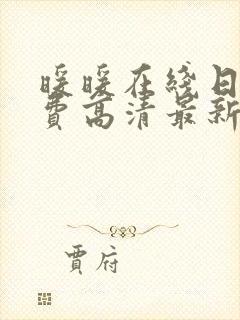 暖暖在线日
费高清最新
贾府